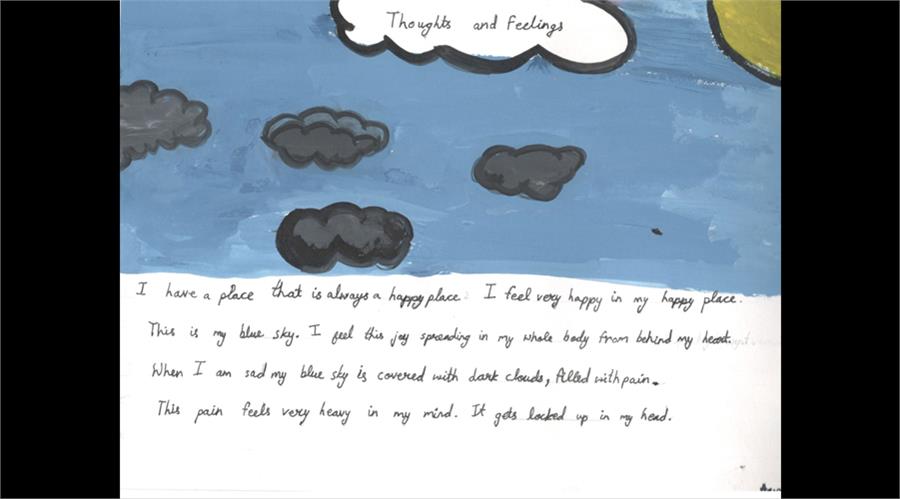 Thoughts and Feelings
I have a place that is always a happy place. I feel very happy in my happy place.
This is my blue sky. I feel this joy spreading in my whole body from behind my heart.
When I am sad my blue sky is covered with dark clouds, filled with pain.
This pain feels very heavy in my mind. It gets locked up in my head.